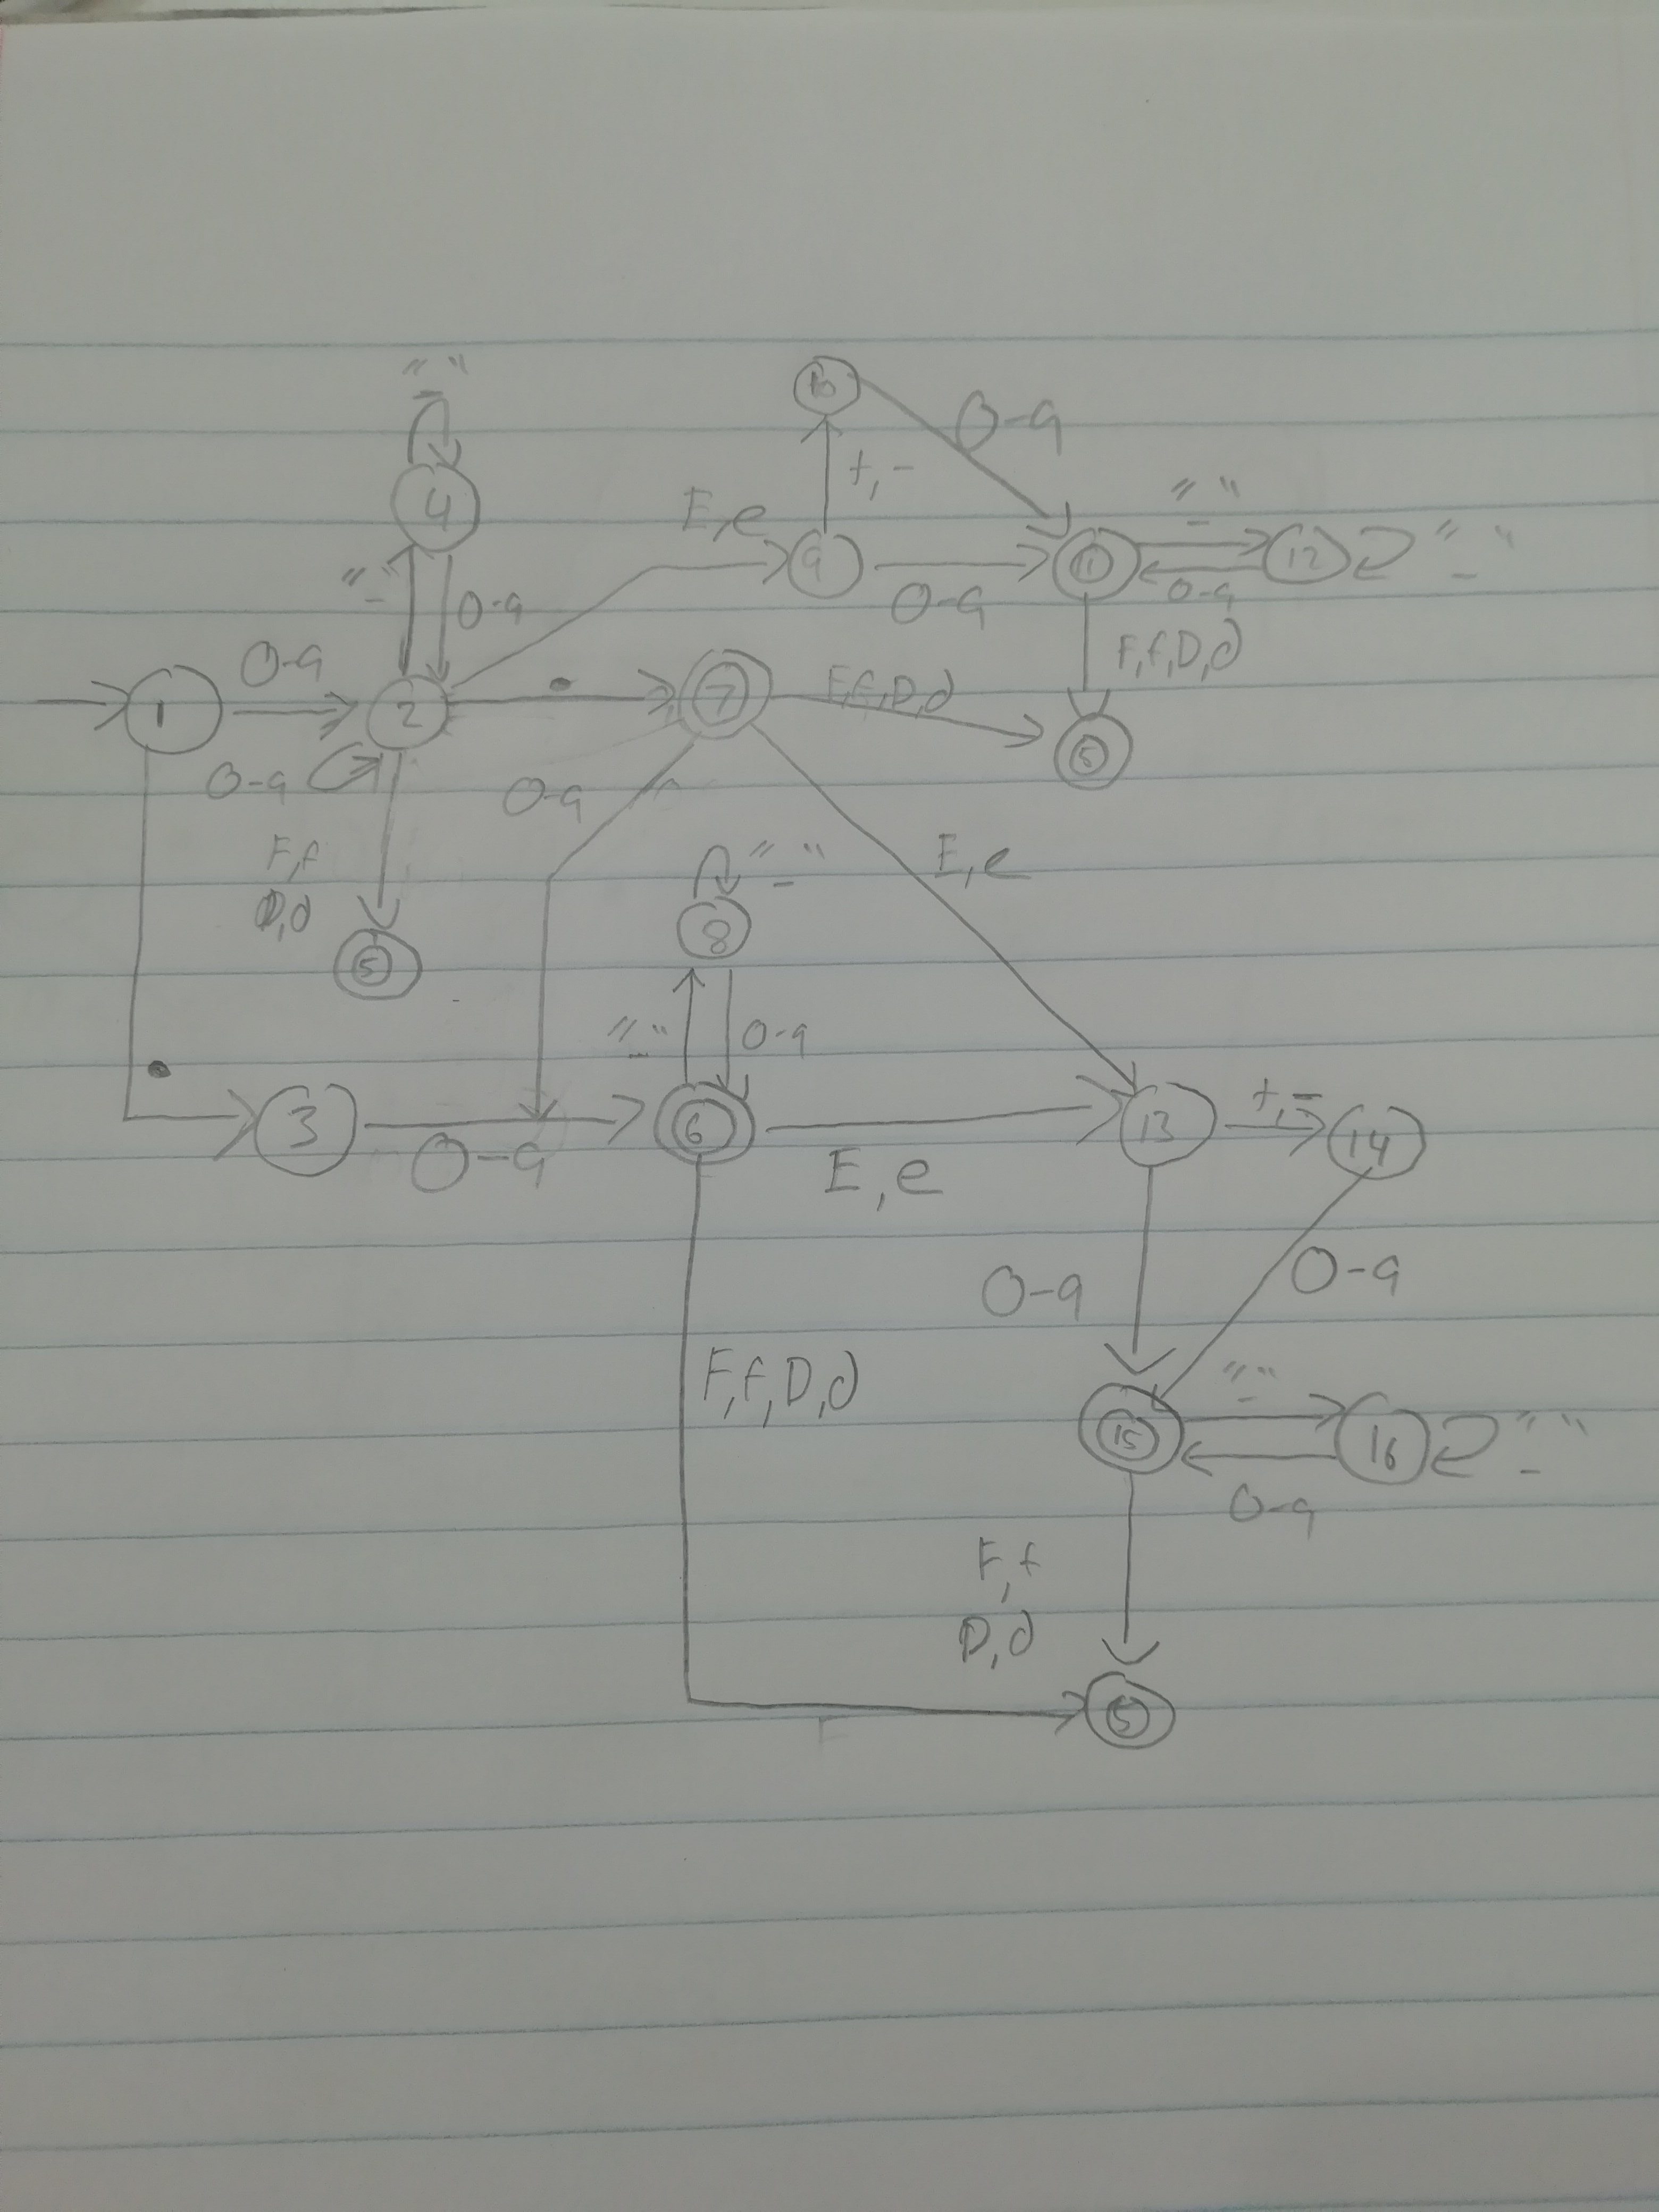 " _ "
10
0-9
+, -
4
E,e
" _ "
9
11
12
" _ "
" _ "
0-9
0-9
0-9
0-9
F,f,D,d
1
2
.
7
F,f,D,d
5
0-9
0-9
F,f
D,d
E,e
" _ "
8
5
" _ "
0-9
.
3
0-9
6
E,e
13
+,-
14
0-9
0-9
F,f,D,d
" _ "
15
16
" _ "
0-9
F,f
D,d
5
F